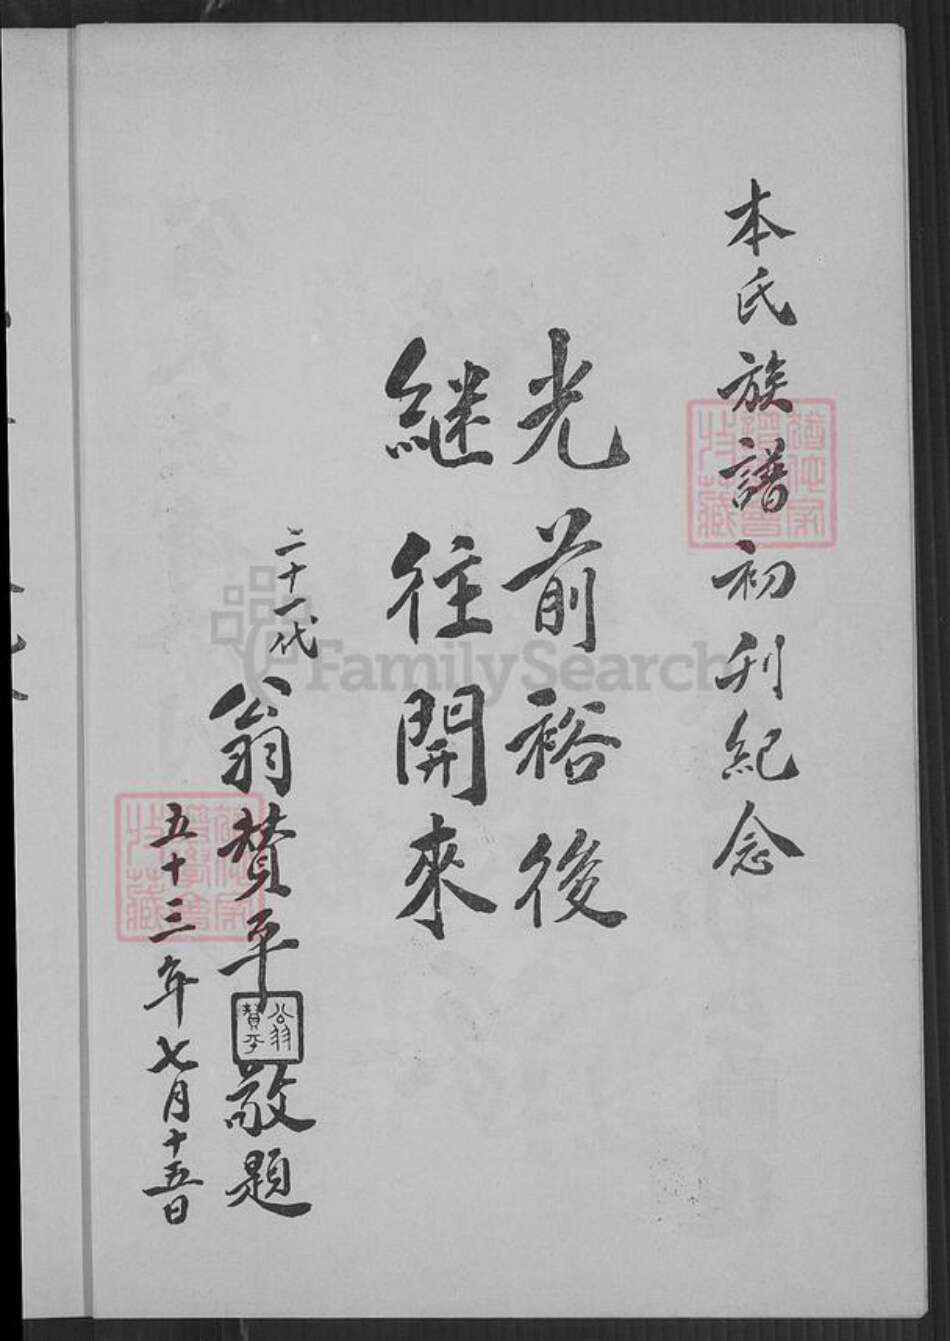 本氏族譜初刊紀念
光前裕後
継往開來
二十一代
翁贊平敬題
翁贊平
五十三年七月十五日
FamilySearch